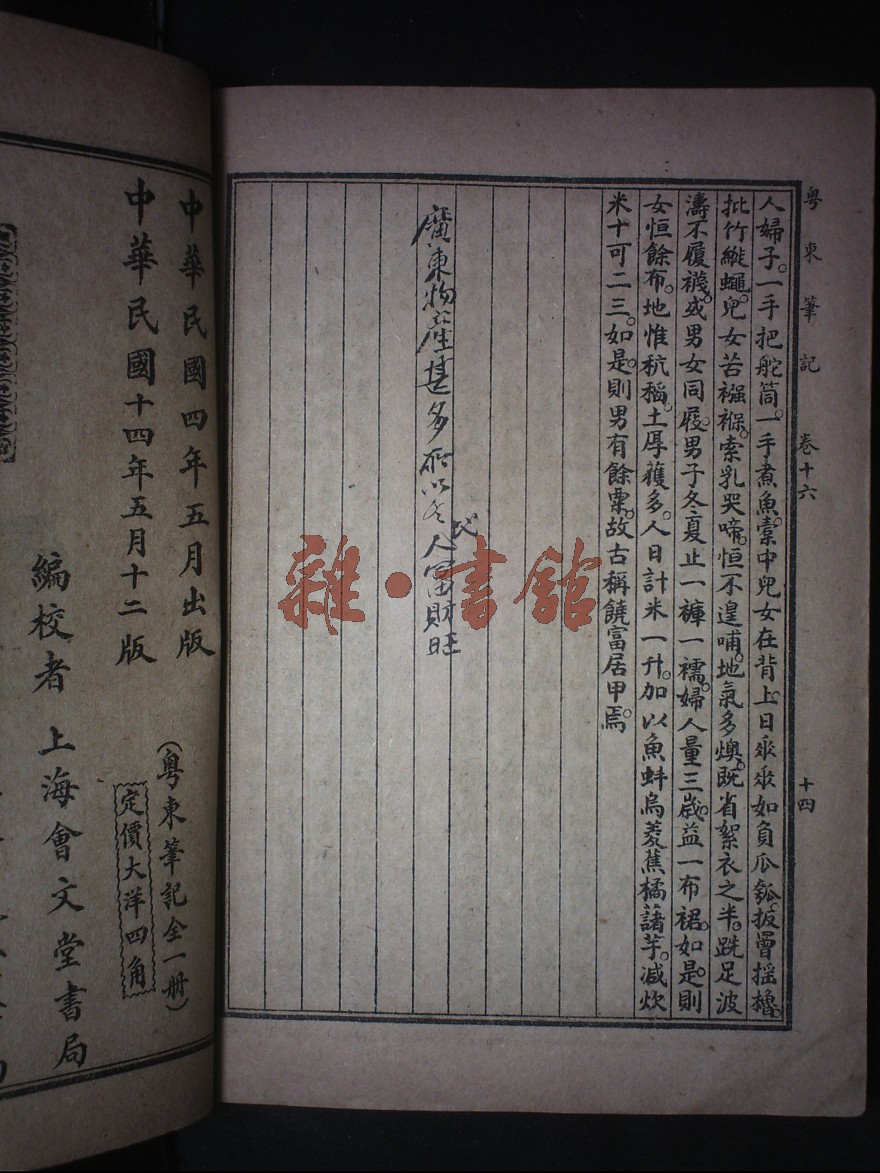 粤東筆記 卷十六 十四
人婦子。一手把舵筒。一手煮魚。橐中兒女在背上。日垂垂如負瓜瓠。扳罾摇櫓。
批竹縱蠅。兒女苦襁褓。索乳哭啼。恒不遑哺。地氣多燠。既省絮衣之半。跣足波
濤。不履襪。或男女同屐。男子冬夏止一褲一襦。婦人量三歲益一布裙。如是。則
女恒餘布。地惟秔稲。土厚穫多。人日計米一升。加以魚蚌烏菱蕉橘藷芋。减炊
米十可二三。如是則男有餘粟。故古稱饒富居甲焉。
廣東物產甚多所以人富財旺
中華民國四年五月出版
中華民國十四年五月十二版
(粤東筆記全一册)
定價大洋四角
編校者 上海會文堂書局
雜·書館